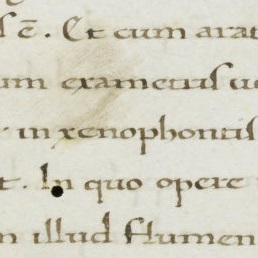 s ē. Et cum arat
um exametus u
r in xenophontis
t. In quo opere
n illud flumen